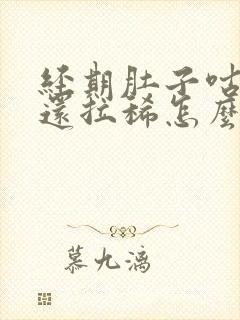 經期肚子咕
還拉稀怎麼
慕九漓